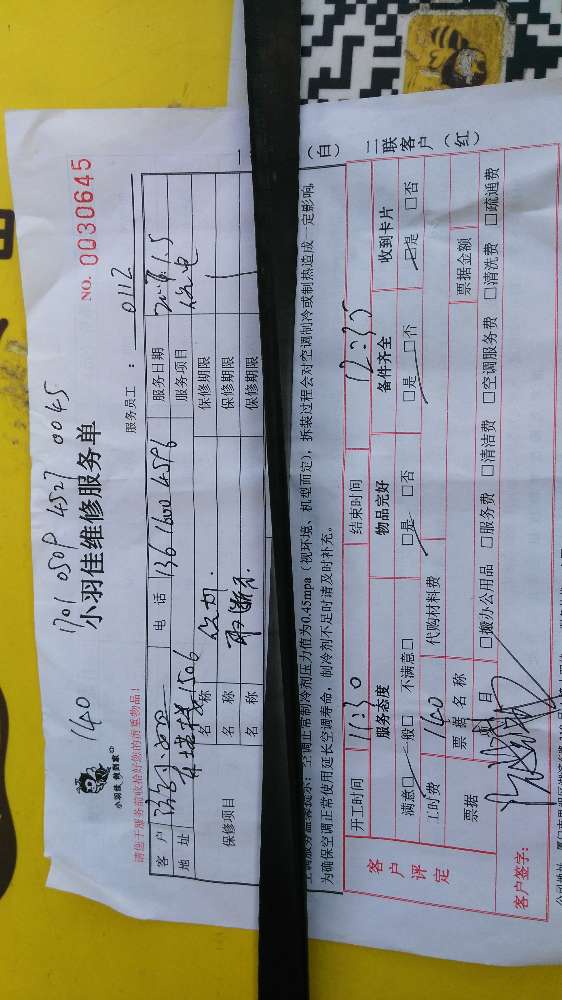 1701 0509 4527 0045
140
小羽佳维修服务单
NO. 0030645
小羽佳, 就到家
服务员工： 0112
请您于服务前收拾好您的贵重物品！
客 户
电 话 136 1600 4596
服务日期
地 址 1506
服务项目
保修项目
名 称
保修期限
名 称
保修期限
名 称
保修期限
一
(白)
二联客户
(红)
空调正常制冷剂压力值为0.45mpa（视环境、机型而定），拆装过程会对空调制冷或制热造成一定影响，
为确保空调正常使用延长空调寿命，制冷剂不足时请及时补充。
客户评定
开工时间 11:30
结束时间 12:35
服务态度
物品完好
备件齐全
收到卡片
满意□ 一般□ 不满意□
□是 □否
□是 □否
□是 □否
工时费 140
代购材料费
票据
票据名称
票据金额
项目
□搬办公用品 □服务费 □清洁费 □空调服务费 □清洗费 □疏通费
客户签字：